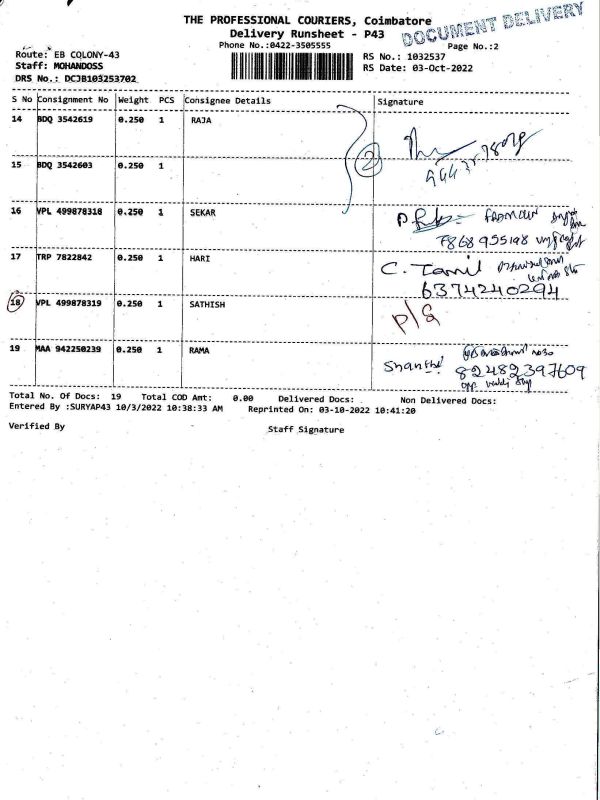 THE PROFESSIONAL COURIERS, Coimbatore
DOCUMENT DELIVERY
Delivery Runsheet - P43
Phone No.:0422-3505555
Page No.:2
Route: EB COLONY-43
RS No.: 1032537
Staff: MOHANDOSS
RS Date: 03-Oct-2022
DRS No.: DCJB103253702
S No Consignment No Weight PCS Consignee Details Signature
14 BDQ 3542619 0.250 1 RAJA
2
15 BDQ 3542603 0.250 1
16 VPL 499878318 0.250 1 SEKAR
7868955198
17 TRP 7822842 0.250 1 HARI C. Tamil
6374240294
18 VPL 499878319 0.250 1 SATHISH
19 MAA 942250239 0.250 1 RAMA
Shanthi 82482397609
Total No. Of Docs: 19 Total COD Amt: 0.00 Delivered Docs: Non Delivered Docs:
Entered By :SURYAP43 10/3/2022 10:38:33 AM Reprinted On: 03-10-2022 10:41:20
Verified By Staff Signature